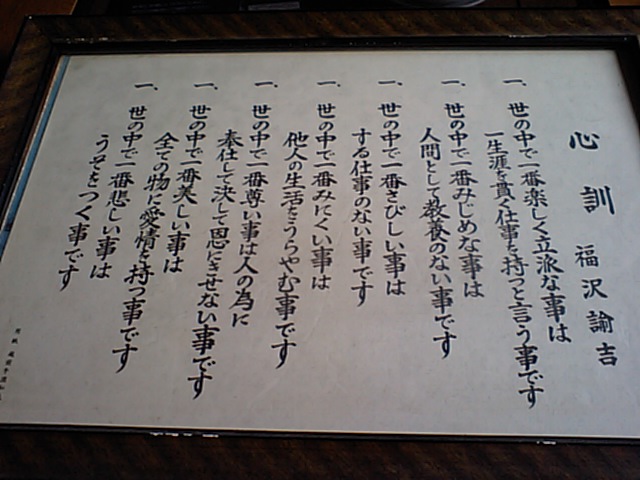 心訓 福沢諭吉
一、世の中で一番楽しく立派な事は
一生涯を貫く仕事を持つと言う事です
一、世の中で一番みじめな事は
人間として教養のない事です
一、世の中で一番さびしい事は
する仕事のない事です
一、世の中で一番みにくい事は
他人の生活をうらやむ事です
一、世の中で一番尊い事は人の為に
奉仕して決して恩にきせない事です
一、世の中で一番美しい事は
全ての物に愛情を持つ事です
一、世の中で一番悲しい事は
うそをつく事です